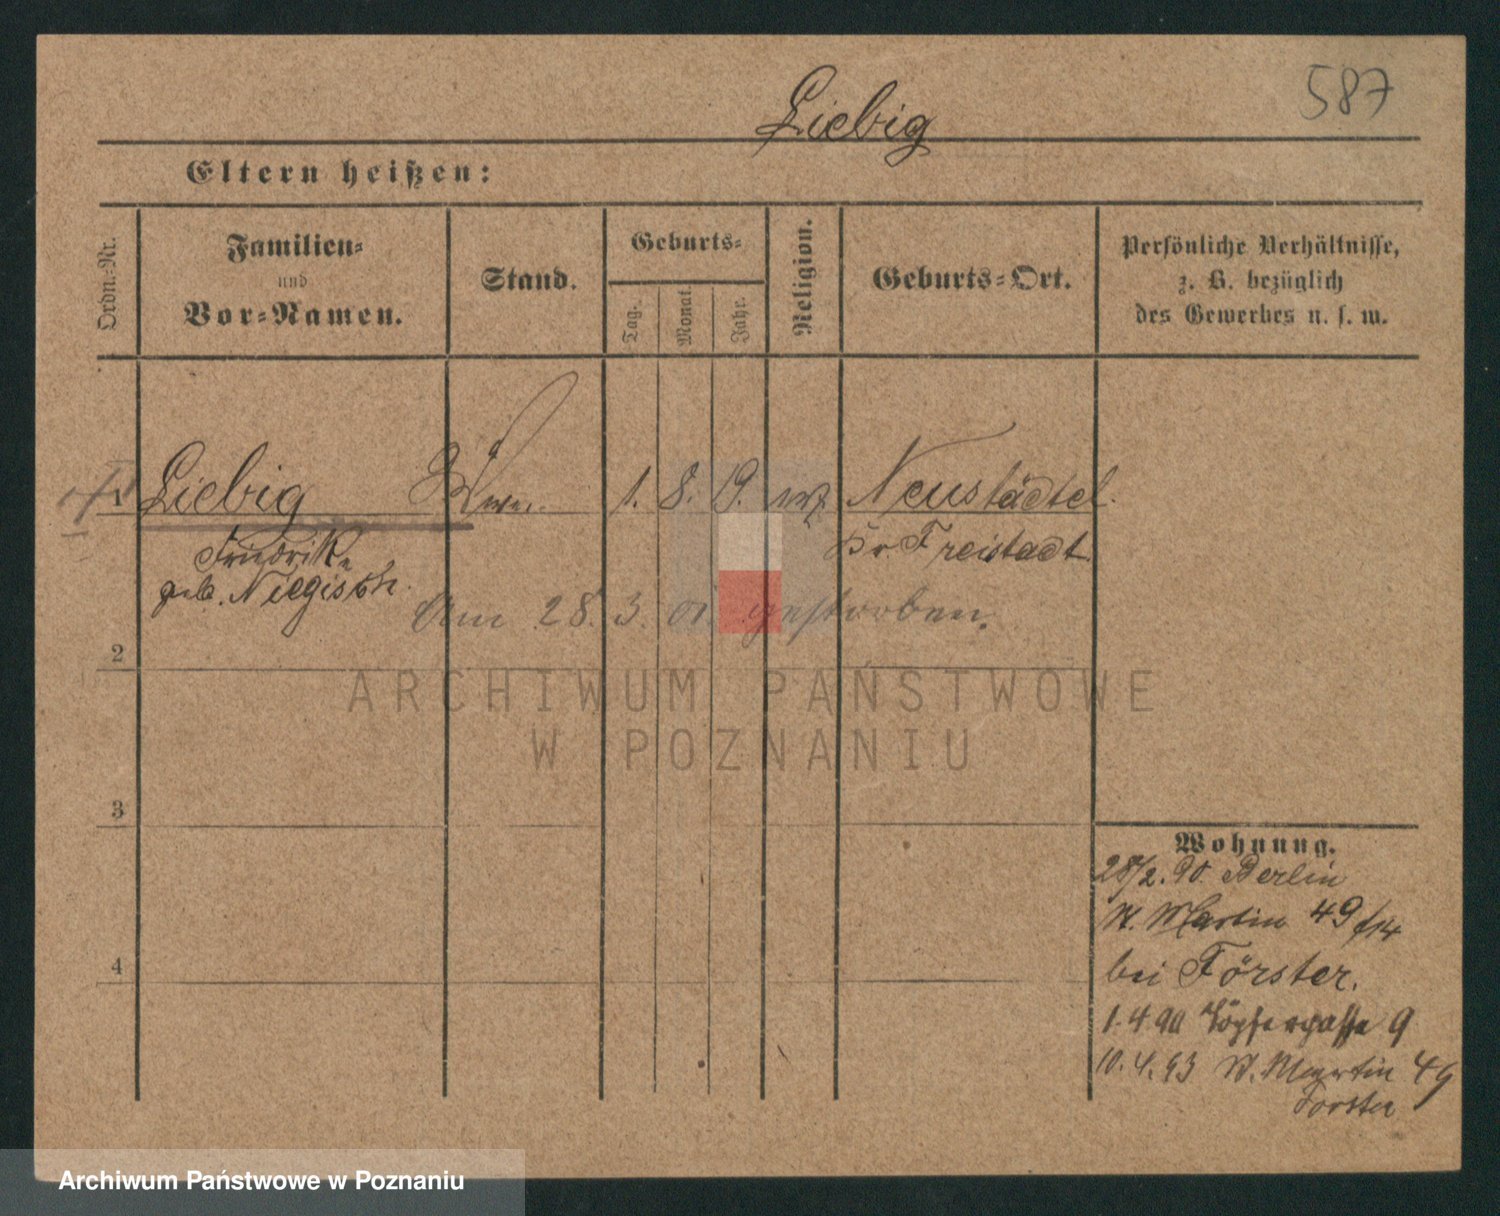 587
Liebig
Eltern heißen:
Ordn.-Nr.
Familien-
und
Vor-Namen.
Stand.
Geburts-
Tag.
Monat.
Jahr.
Religion.
Geburts-Ort.
Persönliche Verhältnisse,
z. B. bezüglich
des Gewerbes u. s. w.
1 Liebig Wwe. 1. 8. 19. Neustädtel
Friedrike Kr. Freistadt.
geb.
Am 28. 3. 01. gestorben.
2
ARCHIWUM PAŃSTWOWE
W POZNANIU
3
4
Wohnung.
28/2. 90. Berlin
St. Martin 49
bei Förster.
1. 4. 90 Töpfergasse 9
10. 4. 93 St. Martin 49
Forster
Archiwum Państwowe w Poznaniu